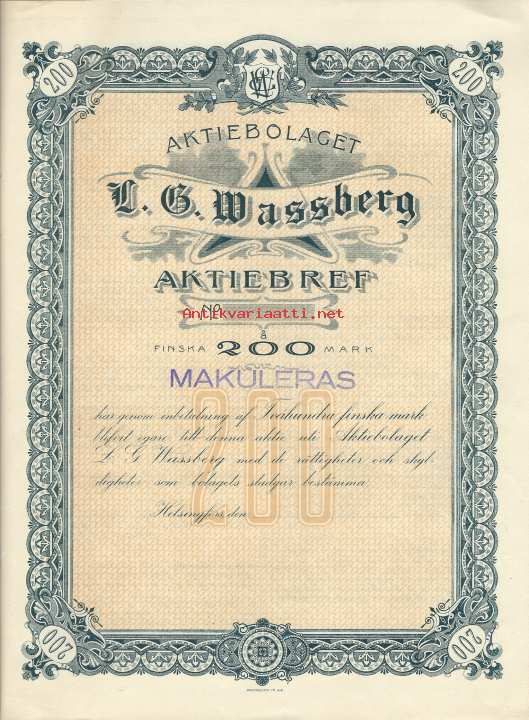 200
200
AKTIEBOLAGET
L. G. Wassberg
AKTIEBREF
No
Antikvariaatti.net
å
FINSKA 200 MARK
MAKULERAS
har genom inbetalning af Tvåhundra finska mark
blifvit egare till denna aktie uti Aktiebolaget
L G Wassberg med de rättigheter och skyl
digheter som bolagets stadgar bestämma
200
Helsingfors, den
200
200